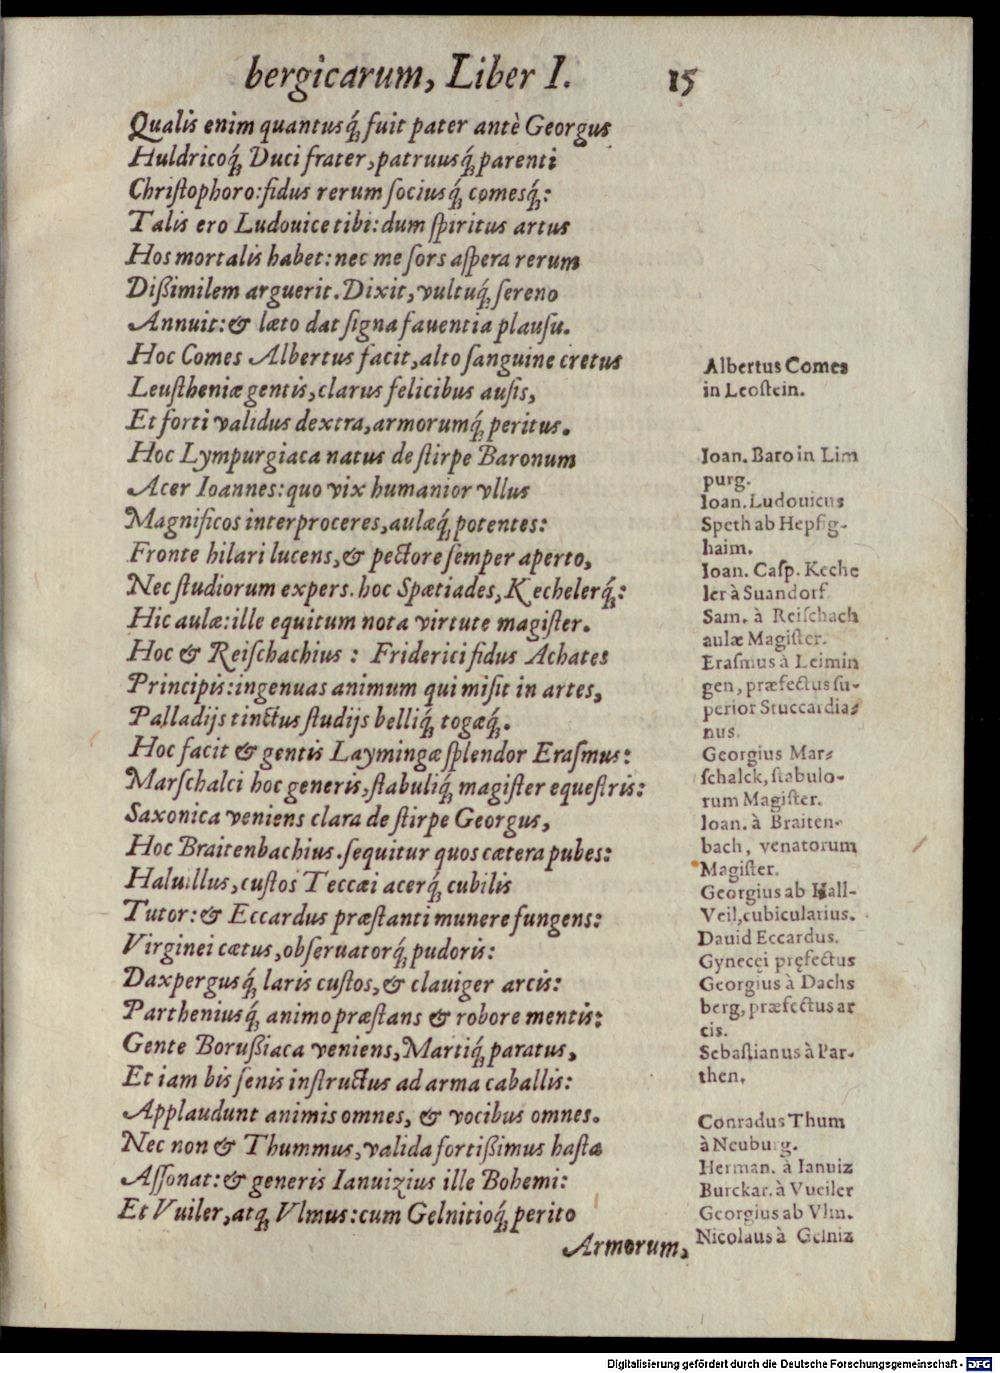 bergicarum, Liber I. 15
Qualis enim quantusq́; fuit pater antè Georgus
Huldricoq́; Duci frater, patruusq́; parenti
Chriſtophoro: fidus rerum ſociusq́; comesq́;:
Talis ero Ludouice tibi: dum ſpiritus artus
Hos mortalis habet: nec me ſors aſpera rerum
Dißimilem arguerit. Dixit, vultuq́; ſereno
Annuit: & læto dat ſigna fauentia plauſu.
Hoc Comes Albertus facit, alto ſanguine cretus
Leuſtheniæ gentis, clarus felicibus auſis,
Et forti validus dextra, armorumq́; peritus.
Hoc Lympurgiaca natus de ſtirpe Baronum
Acer Ioannes: quo vix humanior vllus
Magnificos inter proceres, aulæq́; potentes:
Fronte hilari lucens, & pectore ſemper aperto,
Nec ſtudiorum expers. hoc Spætiades, Kechelerq́;:
Hic aulæ: ille equitum nota virtute magiſter.
Hoc & Reiſchachius: Friderici fidus Achates
Principis: ingenuas animum qui miſit in artes,
Palladijs tinctus ſtudijs belliq́; togæq́;.
Hoc facit & gentis Laymingæ ſplendor Eraſmus:
Marſchalci hoc generis, ſtabuliq́; magiſter equeſtris:
Saxonica veniens clara de ſtirpe Georgus,
Hoc Braitenbachius. ſequitur quos cætera pubes:
Haluillus, cuſtos Teccæi acerq́; cubilis
Tutor: & Eccardus præſtanti munere fungens:
Virginei cætus, obſeruatorq́; pudoris:
Daxpergusq́; laris cuſtos, & clauiger arcis:
Partheniusq́; animo præſtans & robore mentis:
Gente Borußiaca veniens, Martiq́; paratus,
Et iam bis ſenis inſtructus ad arma caballis:
Applaudunt animis omnes, & vocibus omnes.
Nec non & Thummus, valida fortißimus haſta
Aſſonat: & generis Ianuizius ille Bohemi:
Et Vuiler, atq; Vlmus: cum Gelnitioq́; perito
Armorum,
Albertus Comes
in Leoſtein.
Ioan. Baro in Lim
purg.
Ioan. Ludouicus
Speth ab Hepfig-
haim.
Ioan. Caſp. Keche
ler à Suandorf
Sam. à Reiſchach
aulæ Magiſter.
Eraſmus à Leimin
gen, præfectus ſu-
perior Stuccardia-
nus.
Georgius Mar-
ſchalck, ſtabulo-
rum Magiſter.
Ioan. à Braiten-
bach, venatorum
Magiſter.
Georgius ab Hall-
Veil, cubicularius.
Dauid Eccardus.
Gynecęi pręfectus
Georgius à Dachs
berg, præfectus ar
cis.
Sebaſtianus à Par-
then.
Conradus Thum
à Neuburg.
Herman. à Ianuiz
Burckar. à Vueiler
Georgius ab Vlm.
Nicolaus à Gelniz
Digitalisierung gefördert durch die Deutsche Forschungsgemeinschaft - DFG